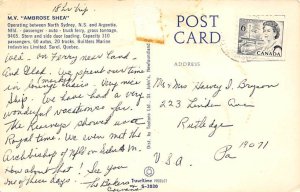 18 hr trip.
M.V. "AMBROSE SHEA"
Operating between North Sydney, N.S. and Argentia,
Nfld - passenger - auto - truck ferry, gross tonnage,
9405. Stern and side door loading. Capacity 310
passengers, 60 autos, 20 trucks. Builders Marine
Industries Limited, Sorel, Quebec.
POST
CARD
CANADA
ADDRESS
on Ferry near Land.
And Glad. We spent our time
in lounge chairs. Very nice
Ship. We have had a very
wonderful vacation for
the Kennys showed us a
Royal time. We even met the
Archbishop of Nfld on Sunday A.M.
How about that! See you
one of these days - The Bakers
Mr & Mrs Harvey S. Bryson
223 Linden Ave
Rutledge
Pa 19071
U.S.A.
Traveltime PRODUCT
S-3020